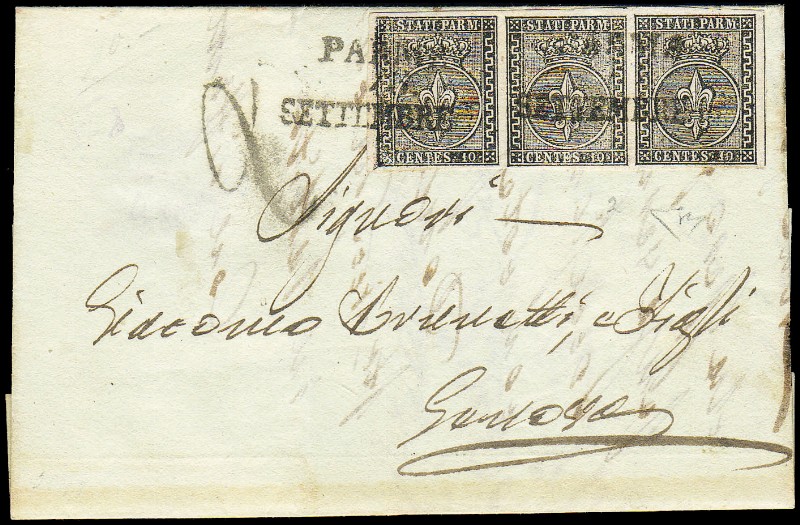 STATI PARM STATI PARM STATI PARM
PARMA
SETTEMBRE SETTEMBRE
CENTES. 10 CENTES. 10 CENTES. 10
2
Signori
Giacomo Brunetti, e Figli
Genova